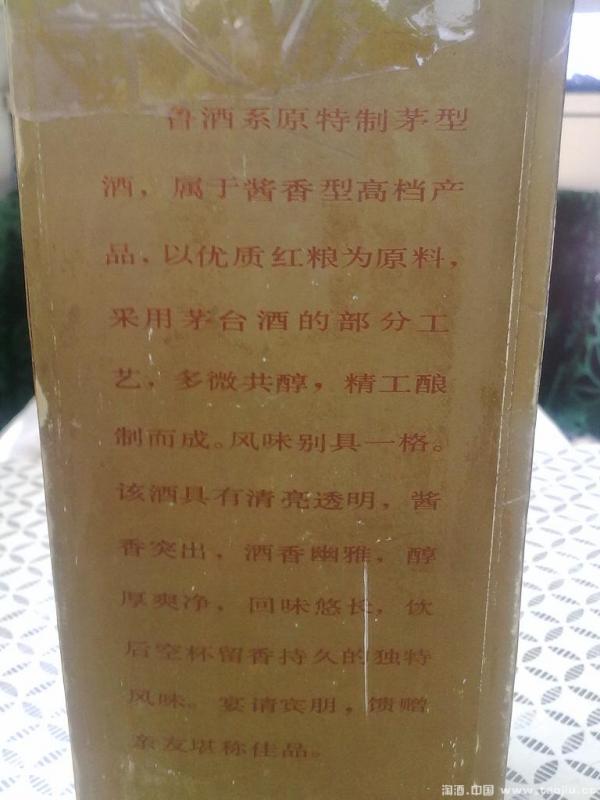 鲁酒系原特制茅型
酒，属于酱香型高档产
品，以优质红粮为原料，
采用茅台酒的部分工
艺，多微共醇，精工酿
制而成。风味别具一格。
该酒具有清亮透明，酱
香突出，酒香幽雅，醇
厚爽净，回味悠长，饮
后空杯留香持久的独特
风味。宴请宾朋，馈赠
亲友堪称佳品。
淘酒.中国 www.taojiu.cc